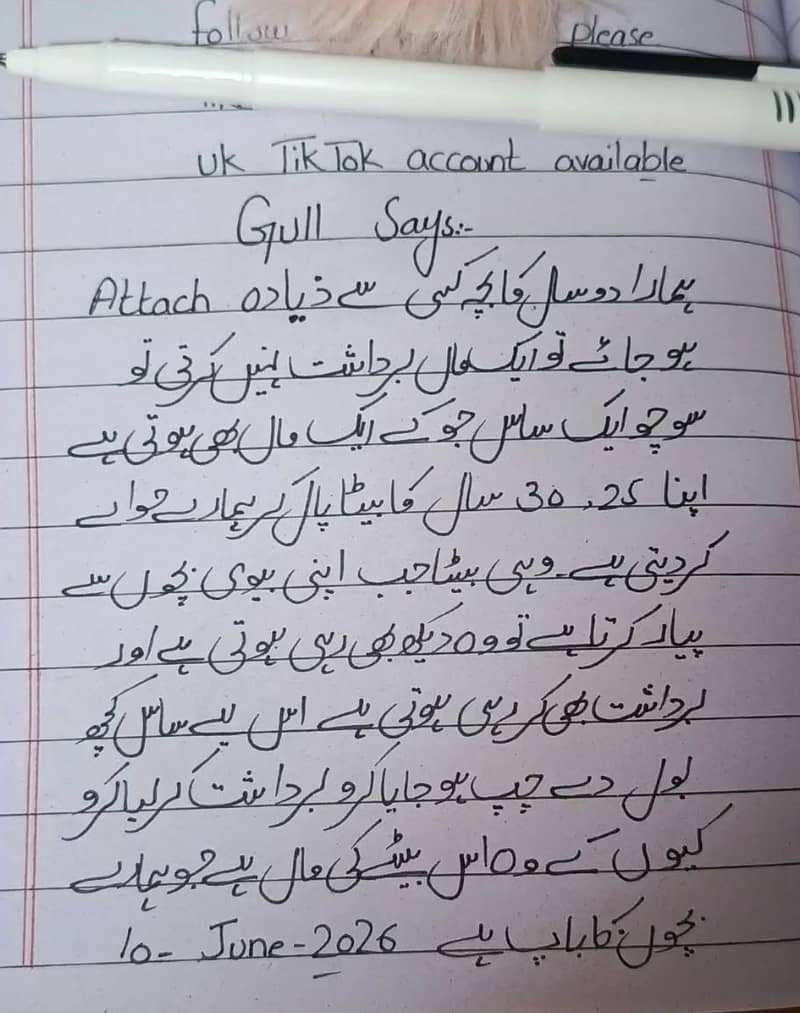 follow please
uk TikTok account available
Gull Says:-
ہمارا دو سال کا بچہ کسی سے ذیادہ Attach
ہو جائے تو ایک ماں برداشت نہیں کرتی تو
سوچو ایک ساس جو کے ایک ماں بھی ہوتی ہے
اپنا 25، 30 سال کا بیٹا پال کر ہمارے حوالے
کر دیتی ہے۔ وہی بیٹا جب اپنی بیوی بچوں سے
پیار کرتا ہے تو وہ دیکھ بھی رہی ہوتی ہے اور
برداشت بھی کر رہی ہوتی ہے اس لیے ساس کچھ
بول دے چپ ہو جایا کرو برداشت کر لیا کرو
کیوں کے وہ اس بیٹے کی ماں ہے جو ہمارے
بچوں کا باپ ہے 10- June-2026